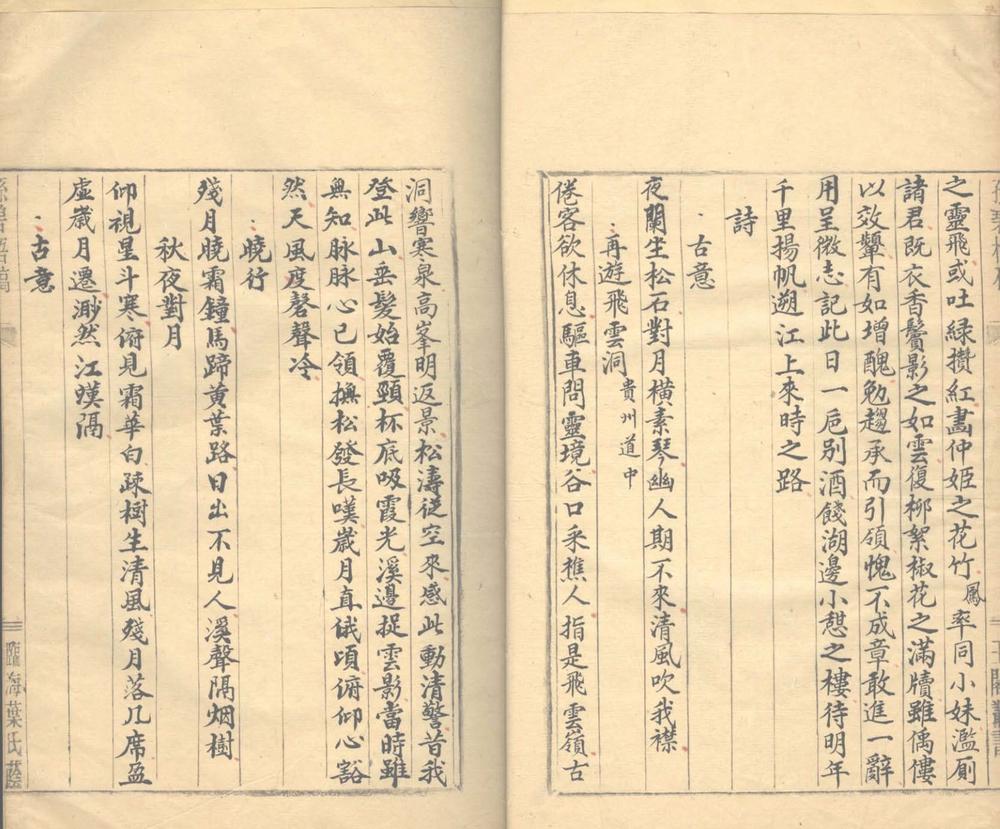 之靈飛或吐緑攢紅畵仲姬之花竹鳳率同小妹濫厠
諸君既衣香鬢影之如雲復栁絮椒花之滿牘雖傴僂
以效顰有如增醜勉趨承而引領愧不成章敢進一辭
用呈微志記此日一巵别酒餞湖邊小憇之樓待明年
千里揚帆遡江上來時之路
詩
古意
夜闌坐松石對月横素琴幽人期不來清風吹我襟
再遊飛雲洞貴州道中
倦客欲休息驅車問靈境谷口采樵人指是飛雲嶺古
洞響寒泉高峯明返景松濤從空來感此動清警昔我
登此山垂髮始覆頸杯底吸霞光溪邊捉雲影當時雖
無知脉脉心已領撫松發長嘆歲月直俄頃俯仰心豁
然天風度磬聲冷
曉行
殘月曉霜鐘馬蹄黄葉路日出不見人溪聲隔烟樹
秋夜對月
仰視星斗寒俯見霜華白疎樹生清風殘月落几席盈
虛歲月遷渺然江漢隔
古意
三